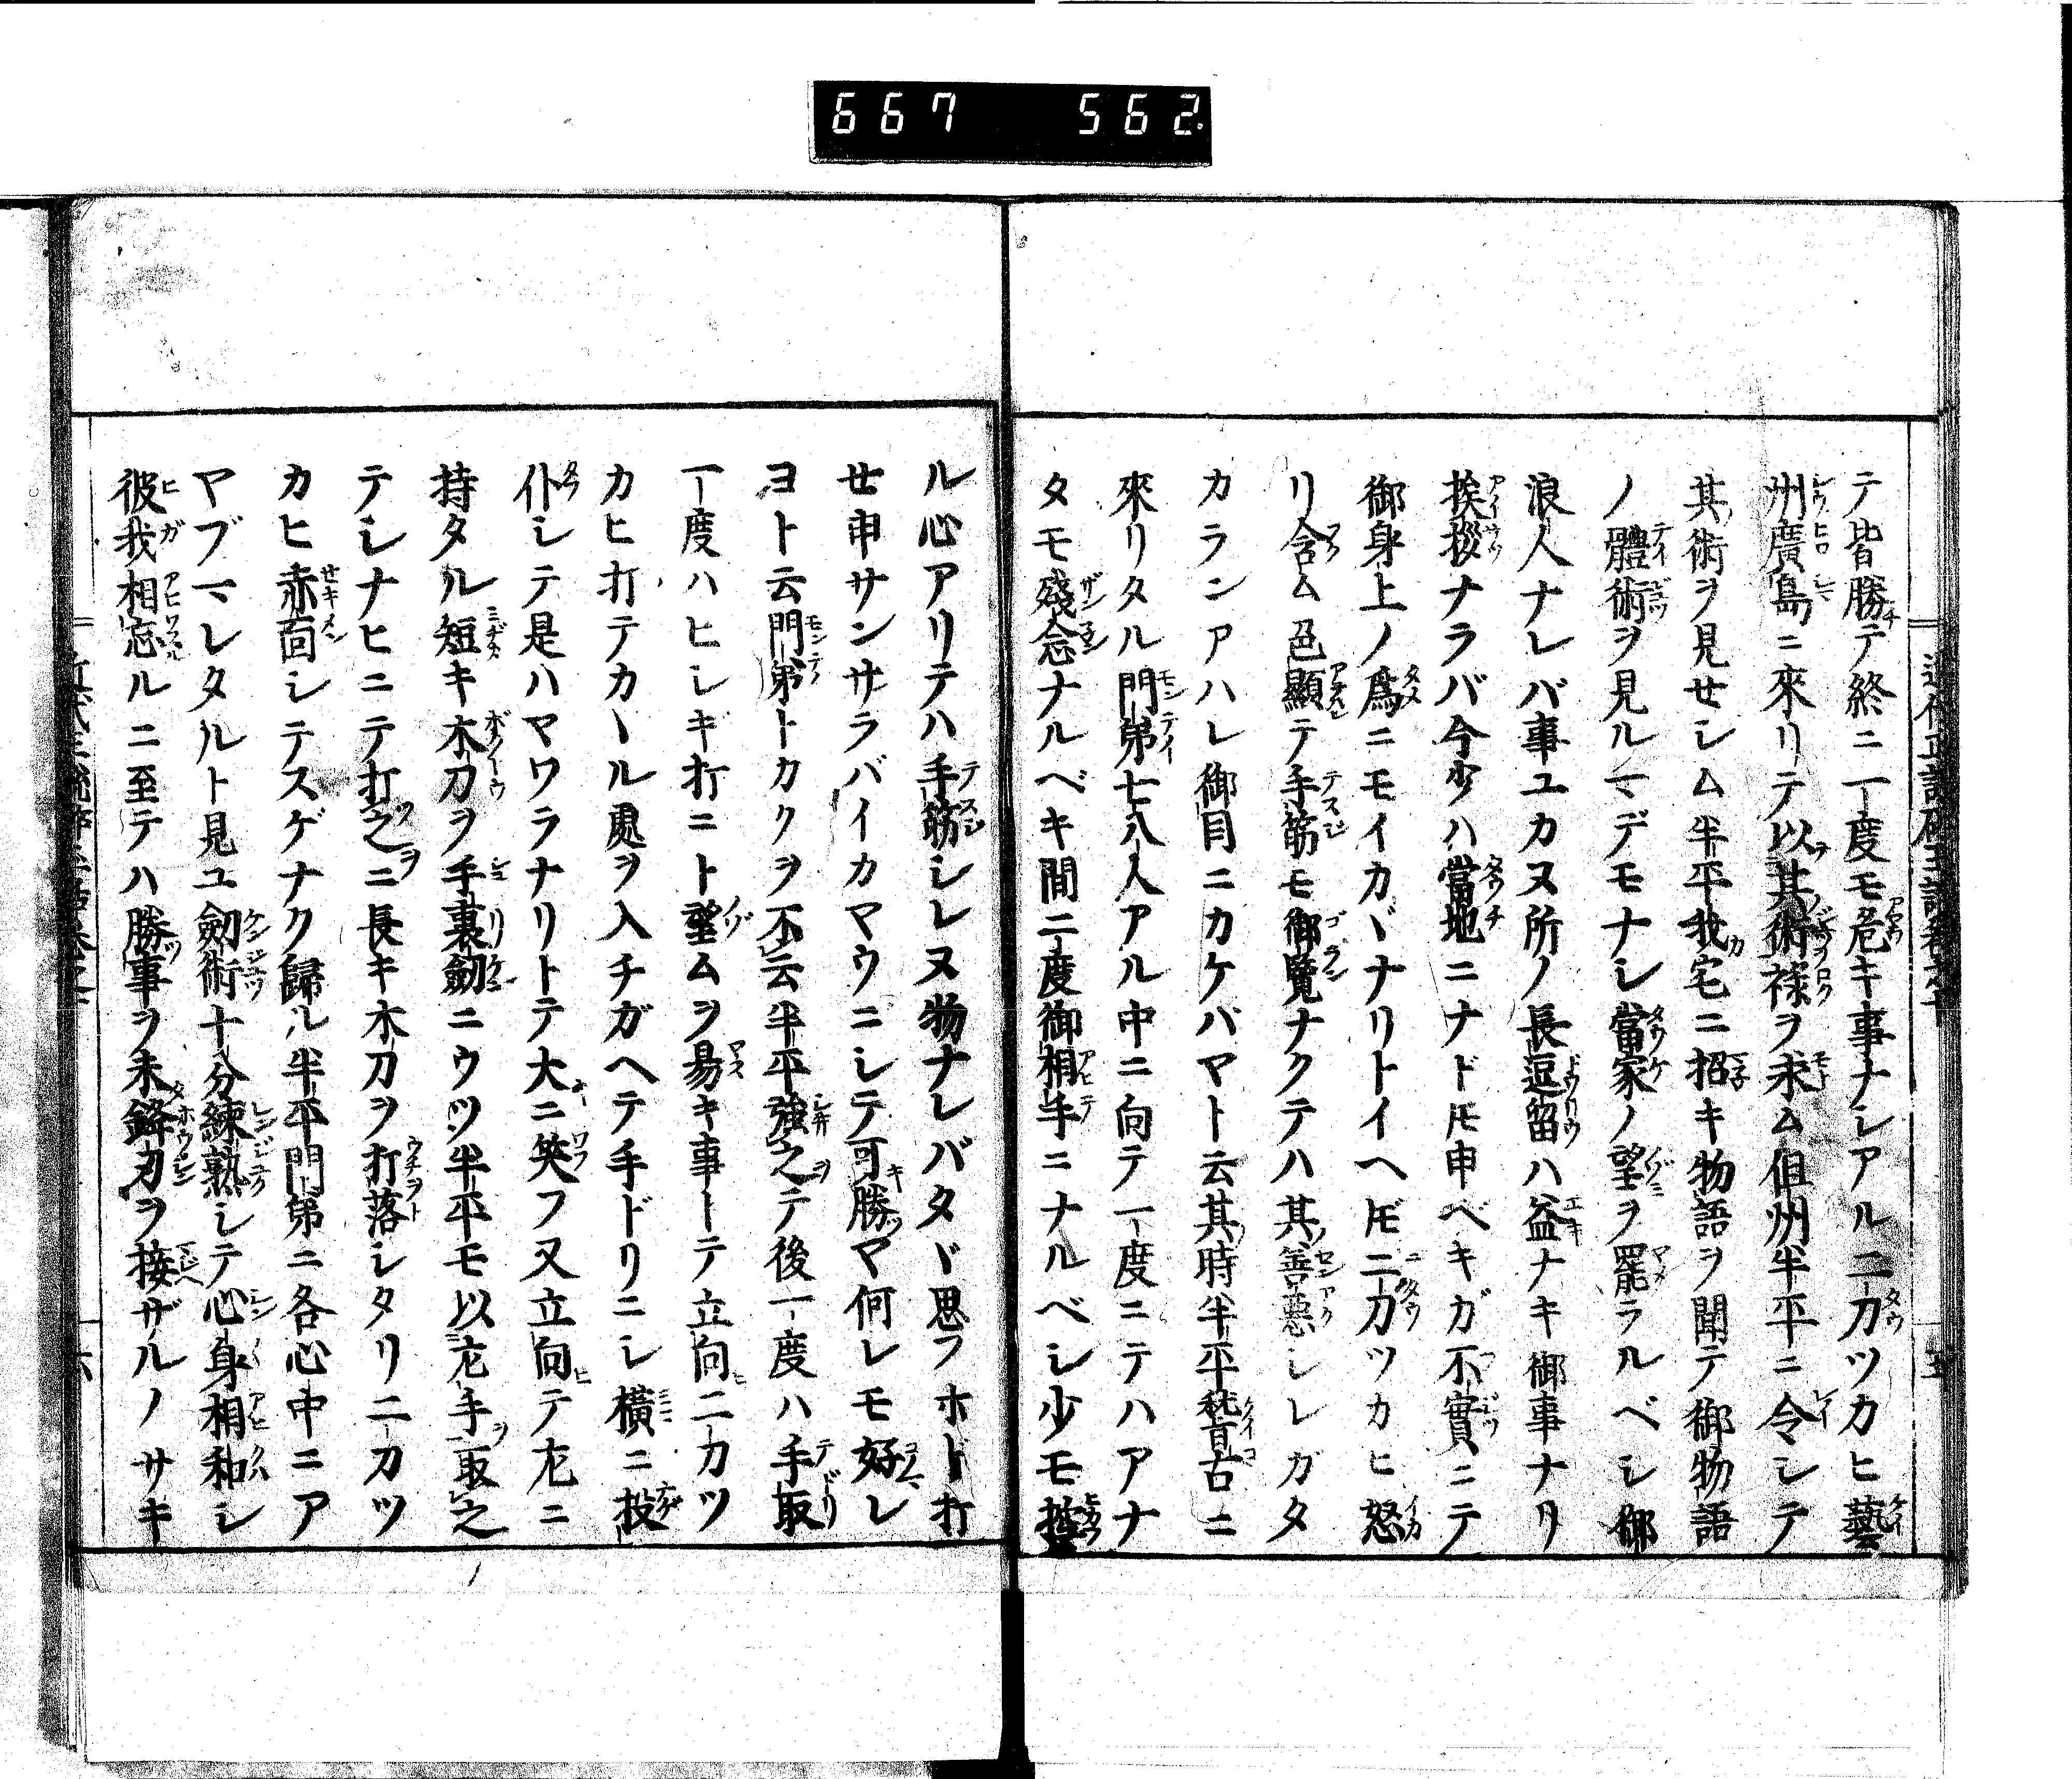 667 562
テ皆勝テ終ニ一度モ危キ事ナシアル二刀ツカヒ藝
州廣島ニ來リテ以其術祿ヲ求ム但州半平ニ令シテ
其術ヲ見せシム半平我宅ニ招キ物語ヲ聞テ御物語
ノ體術ヲ見ルマデモナシ當家ノ望ヲ罷ラルベシ御
浪人ナレバ事ユカヌ所ノ長逗留ハ益ナキ御事ナリ
挨拶ナラバ今少ハ當地ニナドモ申ベキガ不實ニテ
御身上ノ爲ニモイカヾナリトイヘドモ二刀ツカヒ怒
リ含ム色顯テ手筋モ御覽ナクテハ其善惡シレガタ
カランアハレ御目ニカケバマト云其時半平稽古ニ
來リタル門弟七八人アル中ニ向テ一度ニテハアナ
タモ殘念ナルベキ間二度御相手ニナルベシ少モ
ル心アリテハ手筋シレヌ物ナレバタヾ思フホド打
せ申サンサラバイカマウニシテ可勝マ何レモ好レ
ヨト云門弟トカクヲ不云半平強之テ後一度ハ手取
一度ハヒシギ打ニト望ムヲ易キ事トテ立向二刀ツ
カヒ打テカヽル處ヲ入チガヘテ手ドリニシ横ニ投
仆シテ是ハマワラナリトテ大ニ笑フ又立向テ左ニ
持タル短キ木刀ヲ手裏劔ニウツ半平モ以左手取之
テシナヒニテ打之ニ長キ木刀ヲ打落シタリ二刀ツ
カヒ赤面シテスゲナク歸ル半平門弟ニ各心中ニア
マブマレタルト見ユ劔術十分練熟シテ心身相和シ
彼我相忘ルニ至テハ勝事ヲ未鋒刃ヲ接ザルノサキ
六